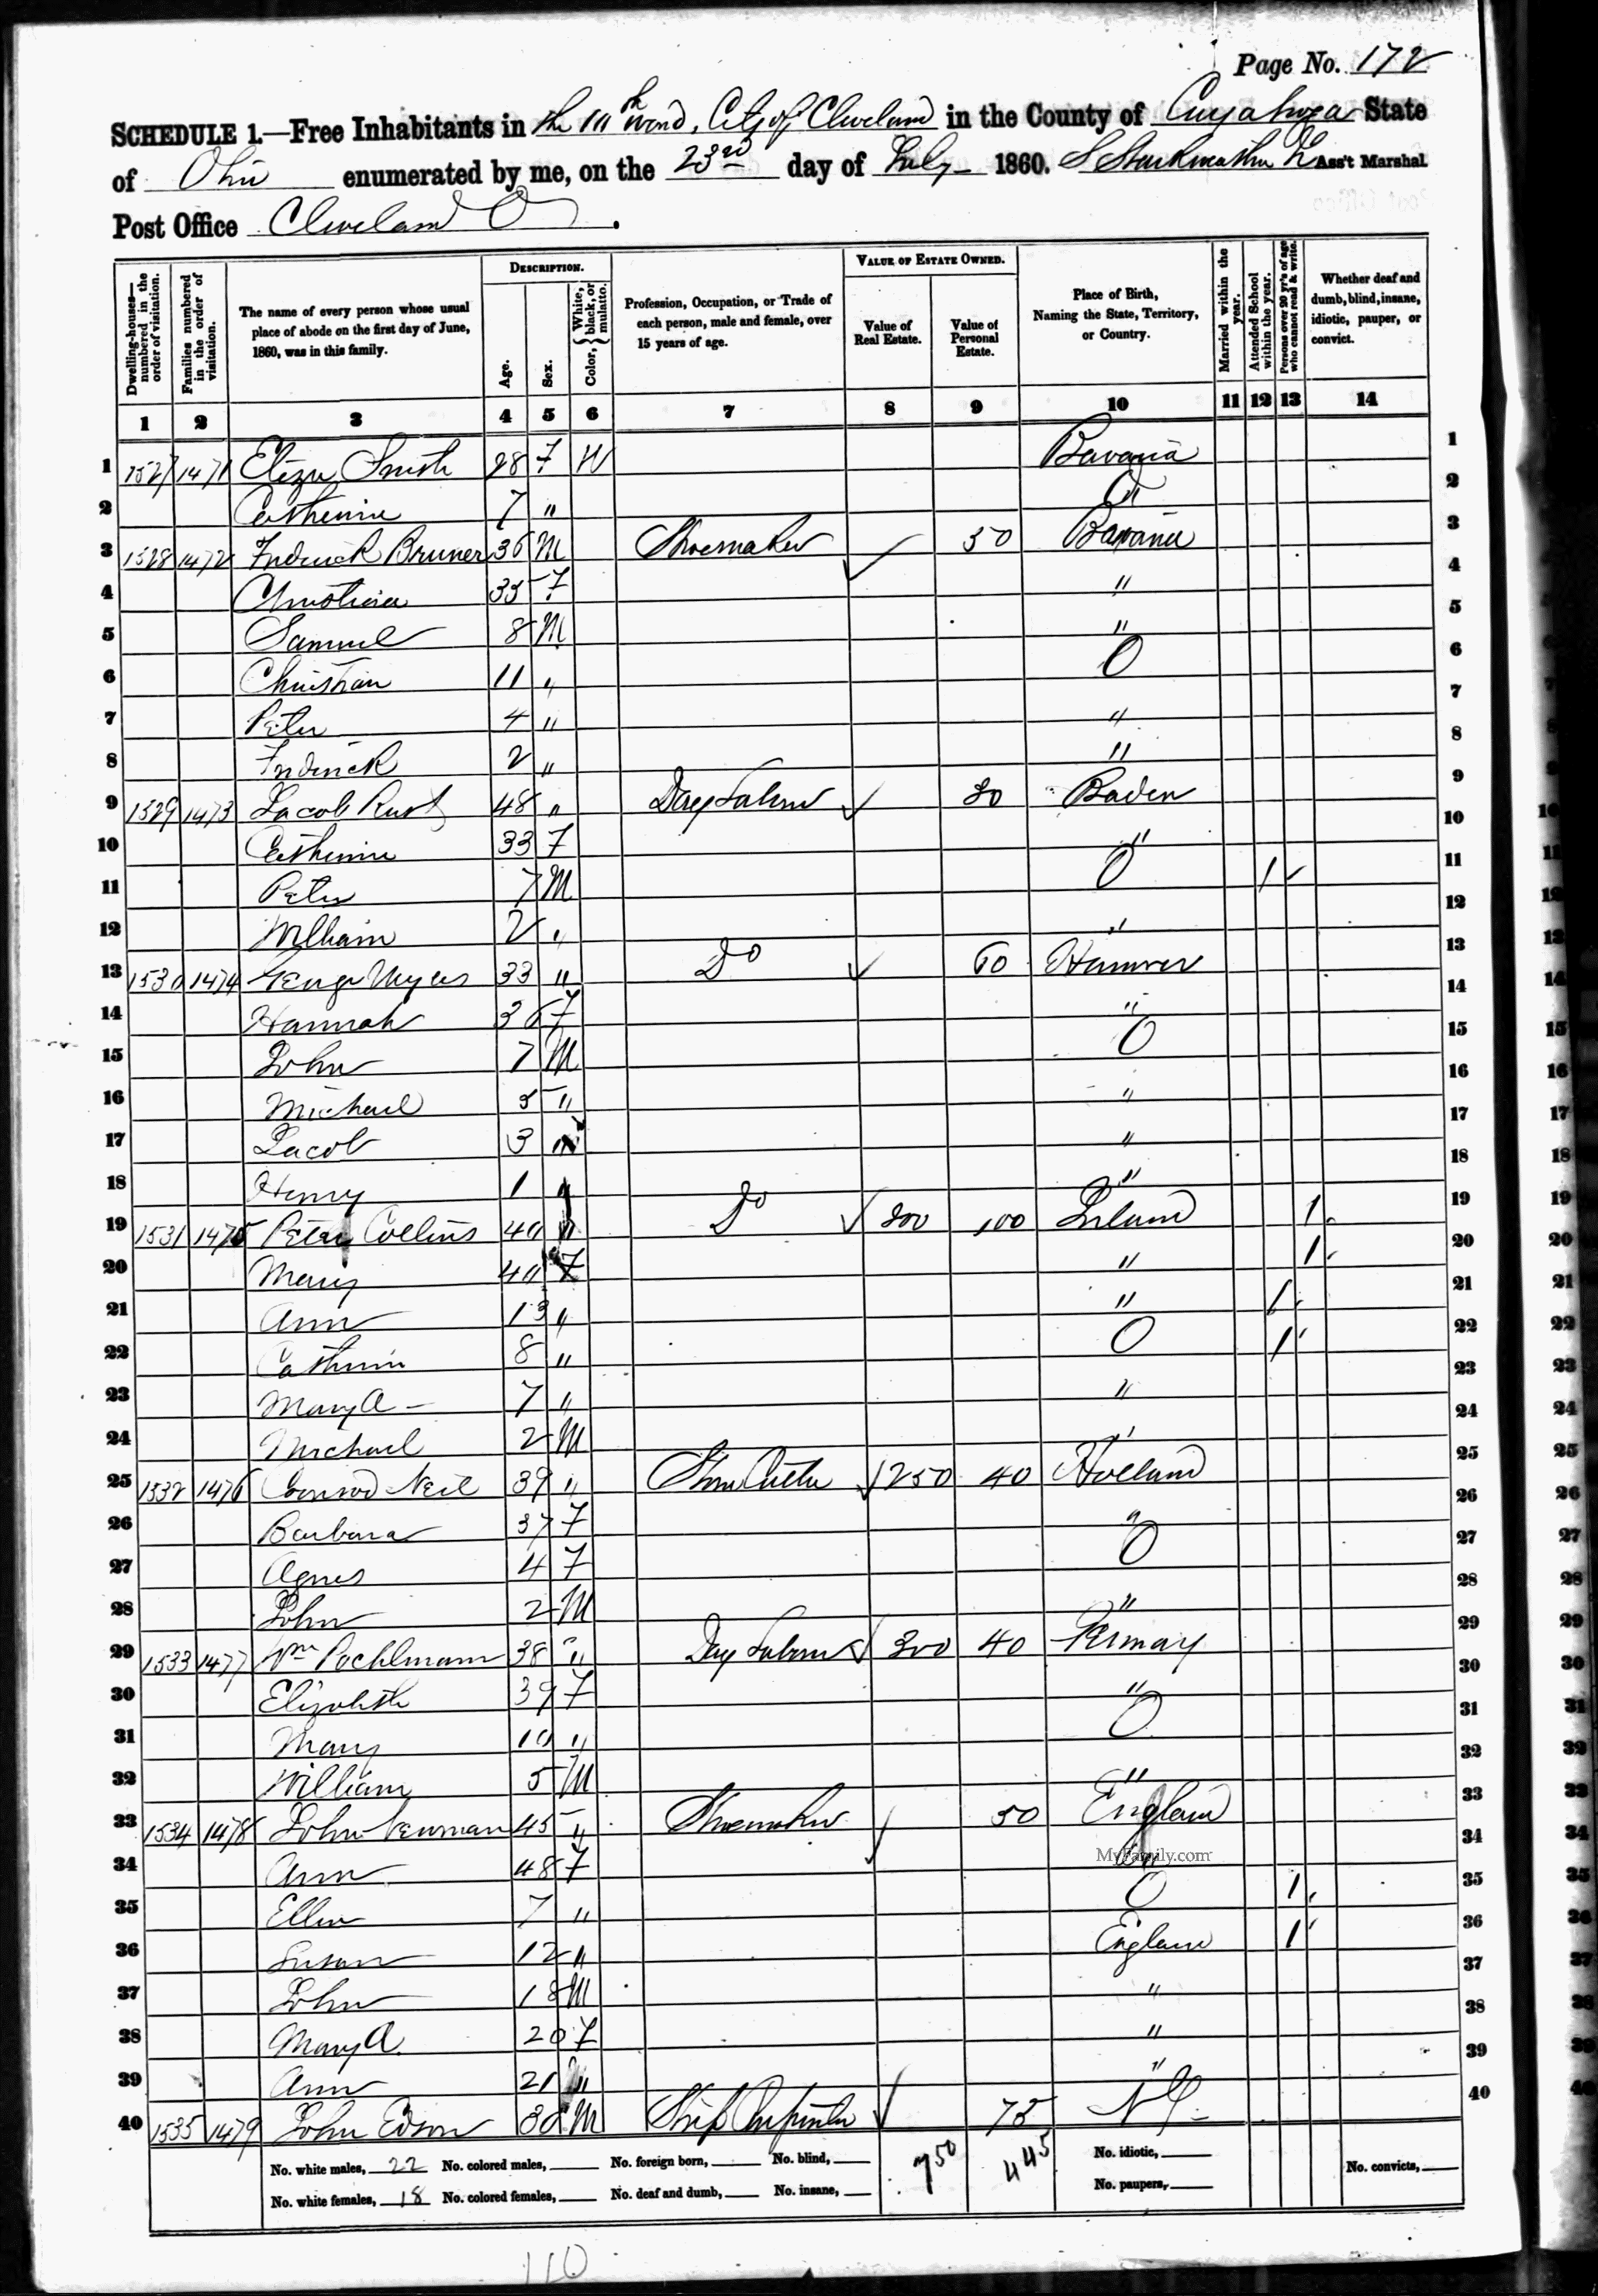 Page No. 172
SCHEDULE 1.—Free Inhabitants in the 11th Ward, City of Cleveland in the County of Cuyahoga State
of Ohio enumerated by me, on the 23rd day of July 1860. Ass't Marshal
Post Office Cleveland O.
Dwelling-houses—numbered in the order of visitation. Families numbered in the order of visitation. The name of every person whose usual place of abode on the first day of June, 1860, was in this family. DESCRIPTION. Age. Sex. Color, { White, black, or mulatto. Profession, Occupation, or Trade of each person, male and female, over 15 years of age. VALUE OF ESTATE OWNED. Value of Real Estate. Value of Personal Estate. Place of Birth, Naming the State, Territory, or Country. Married within the year. Attended School within the year. Persons over 20 yr's of age who cannot read & write. Whether deaf and dumb, blind, insane, idiotic, pauper, or convict.
1 2 3 4 5 6 7 8 9 10 11 12 13 14
1 1527 1471 Eliza Smith 28 F W Bavaria 1
2 Catherine 7 " O 2
3 1528 1472 Frederick Bruner 36 M Shoemaker 50 Bavaria 3
4 Christina 35 F " 4
5 Samuel 8 M " 5
6 Christian 11 " O 6
7 Peter 4 " " 7
8 Frederick 2 " " 8
9 1529 1473 Jacob Rust 48 " Day Laborer 30 Baden 9
10 Catherine 33 F " 10
11 Peter 7 M O 1 11
12 William 2 " " 12
13 1530 1474 George Myers 33 " Do 60 Hanover 13
14 Hannah 36 F " 14
15 John 7 M O 15
16 Michael 5 " " 16
17 Jacob 3 " " 17
18 Henry 1 " " 18
19 1531 1475 Peter Collins 40 " Do 200 100 Ireland 1 19
20 Mary 40 F " 1 20
21 Ann 13 " " 1 21
22 Catherine 8 " O 1 22
23 Mary A 7 " " 23
24 Michael 2 M " 24
25 1532 1476 Conrod Neil 39 " Stone Cutter 250 40 Holland 25
26 Barbara 37 F " 26
27 Agnes 4 F O 27
28 John 2 M " 28
29 1533 1477 Wm Pochlmann 38 " Day Laborer 300 40 Germany 29
30 Elizabeth 39 F " 30
31 Mary 10 " O 31
32 William 5 M " 32
33 1534 1478 John Newman 45 " Shoemaker 50 England 33
34 Ann 48 F " 34
MyFamily.com
35 Ellen 7 " O 1 35
36 Susan 12 " England 1 36
37 John 18 M " 37
38 Mary A. 20 F " 38
39 Ann 21 " " 39
40 1535 1479 John Edson 30 M Ship Carpenter 75 N Y 40
No. white males, 22 No. colored males, No. foreign born, No. blind, 750 445 No. idiotic, No. convicts,
No. white females, 18 No. colored females, No. deaf and dumb, No. insane, No. paupers,
110